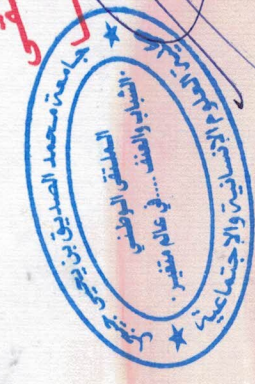 جامعة محمد الصديق بن يحيى جيجل
كلية العلوم الإنسانية والاجتماعية
الملتقى الوطني
الشباب والعنف .... في عالم متغير.